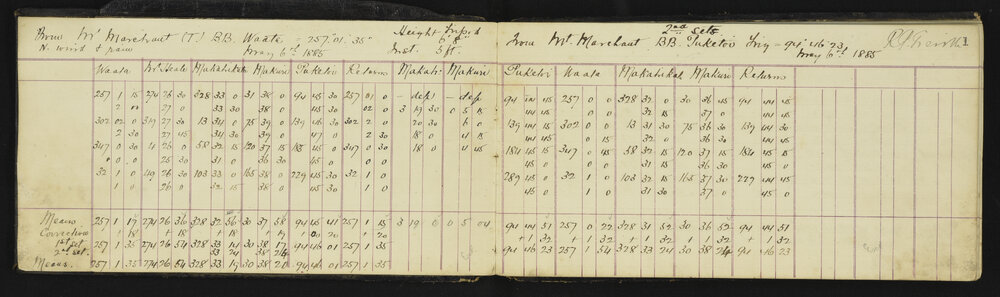 From Mt Marchant (T.) B.B. Waata = 257° 01' 35"
N. wind & rain May 6th 1885
Height Inst. 5 ft.
Waata Mt Heale Makatikatik Makuri Puketoi Returns Makati Makuri
257 1 15 274 26 30 328 33 0 31 38 0 94 45 30 257 01 0 — dep! — dep
2 00 27 0 33 30 38 0 45 30 02 0 3 19 30 0 5 15
302 02 0 319 27 30 13 34 0 75 39 0 139 46 30 302 2 0 20 30 6 0
2 30 27 45 34 30 39 0 47 0 2 30 18 0 4 15
347 0 30 4 26 0 58 32 15 120 37 15 185 45 0 347 0 30 18 0 4 45
0 0 26 30 31 0 36 30 45 0 0 0
32 1 0 49 26 30 103 33 0 165 38 0 229 45 30 32 1 0
1 0 26 0 32 15 38 0 45 30 1 0
Means 257 1 17 274 26 36 328 32 56 30 37 58 94 45 41 257 1 15 3 19 0 0 5 04
Corrections + 18 + 18 + 18 + 19 + 20 + 20
1st set 257 1 35 274 26 54 328 33 14 30 38 17 94 46 01 257 1 35
2nd set. 33 24 38 24
Means. 257 1 35 274 26 54 328 33 19 30 38 21 94 46 01 257 1 35
2nd set
From Mt. Marchant BB Puketoi Trig = 94° 46' 23"
May 6th 1885
1
Puketoi Waata Makatikat Makuri Returns
94 44 45 257 0 0 328 32 0 30 36 45 94 44 45
44 45 0 0 32 15 37 0 44 45
139 44 45 302 0 0 13 31 30 75 36 30 139 44 30
44 45 0 15 32 0 36 30 44 45
184 45 15 347 0 45 58 32 15 120 37 15 184 45 15
45 0 0 0 31 15 36 30 45 0
289 45 0 32 1 0 103 32 15 165 37 30 229 44 45
45 0 1 0 31 30 37 0 45 0
94 44 51 257 0 22 328 31 52 30 36 52 94 44 51
+1 32 + 1 32 + 1 32 + 1 32 + 1 32
94 46 23 257 1 54 328 33 24 30 38 24 94 46 23